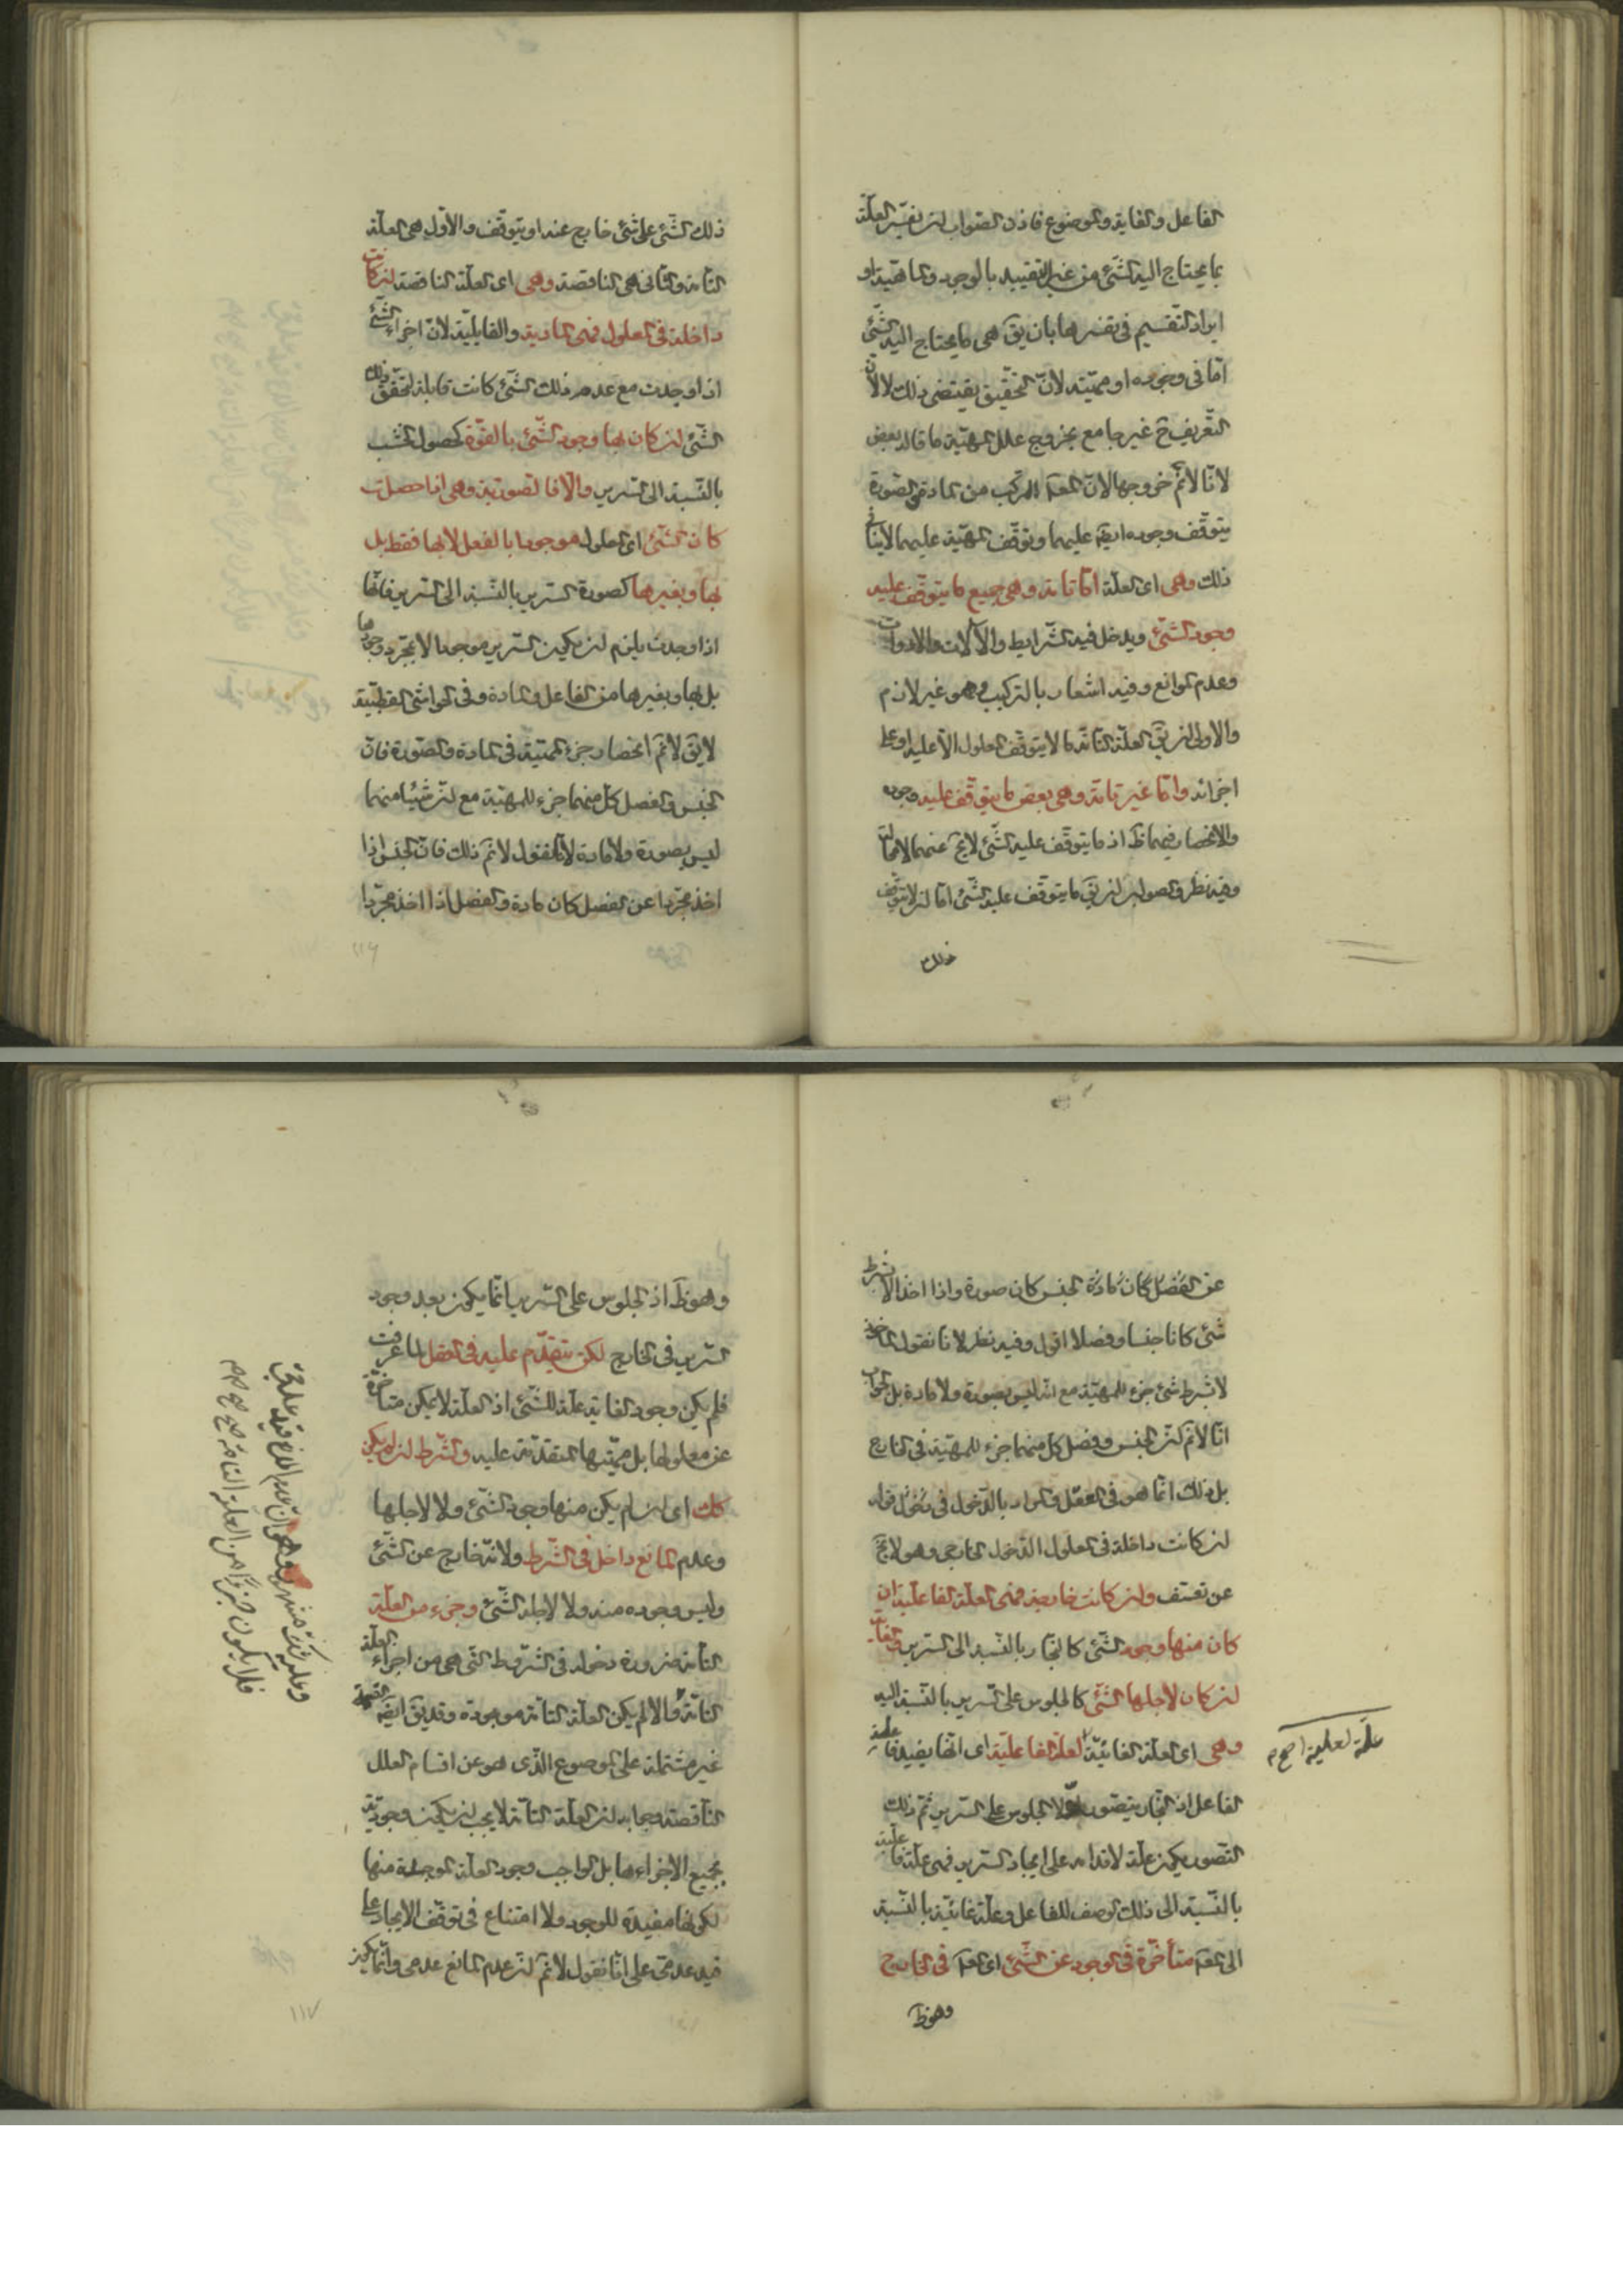 الفاعل والغاية والموضوع فاذن الصواب ان يفسّر العلّة
بما يحتاج اليه الشّئ من غير التقييد بالوجود والماهيّة او
ايراد التقسيم فى تفسيرها بان يقٓ هى ما يحتاج اليه الشّئ
امّا فى وجوده او مهيّته لانّ التحقيق يقتضى ذلك لا لانّ
التّعريف حٓ غير جامع بخروج علل المهيّة ما قاله بعض
لانّا لا نمٓ خروجها لانّ المعهٓ المركّب من المادة والصّورة
يتوقّف وجوده ايضٓ عليهما وتوقّف المهيّة عليهما لا ينافى
ذلك وهى اى العلّة امّا تامّة وهى جميع ما يتوقّف عليه
وجود الشّئ ويدخل فيه الشّرايط والآلات والادوات
وعدم الموانع وفيه اشعار بالتركيب وهو غير لازم
والاولى ان يقٓ العلّة التامّة ما لا يتوقّف المعلول الّا عليه او على
اجزائه وامّا غير تامّة وهى بعض ما يتوقّف عليه وجوده
والانحصار فيهما ظٓ اذ ما يتوقّف عليه الشّئ لا يخٓ عنهما لا محالة
وفيه نظر والصواب ان يقٓ ما يتوقّف عليه الشّئ امّا ان لا يتوقّف
ذلك
ذلك الشّئ على شئ خارج عنه او يتوقّف والاوّل هى العلّة
التامّة والثّانى هى الناقصة وهى اى العلّة الناقصة ان كانت
داخلة فى المعلول فهى المادية والقابليّة لانّ اجزاء الشّئ
اذا وجدت مع عدم ذلك الشّئ كانت قابلة لتحقّق ذلك
الشّئ ان كان بها وجود الشّئ بالقوّة كحصول الخشب
بالنّسبة الى السرير والّا فالصوريّة وهى اذا حصلت
كان الشّئ اى المعلول موجودا بالفعل لا بها فقط بل
بها وبغيرها كصورة السرير بالنّسبة الى السرير فانّها
اذا وجدت يلزم ان يكون السّرير موجودا لا بمجّرد وجودها
بل بها وبغيرها من الفاعل والمادة وفى الحواشى القطبيّة
لا يقٓ لا نمٓ انحصار جزء المهيّة فى المادة والصّورة فانّ
الجنس والفصل كلّ منهما جزء للمهيّة مع ان شيئا منهما
ليس بصورة ولا مادة لانّا نقول لا نمٓ ذلك فانّ الجنس اذا
اخذ مجرّدا عن الفصل كان مادة والفصل اذا اخذ مجرّدا
١١٦
عن الفصل كان مادة الجنس كان صورة واذا اخذا لا بشرط
شئ كانا جنسا وفصلا اقول وفيه نظر لانا نقول المأخوذ
لا بشرط شئ جزء للمهيّة مع انّه ليس بصورة ولا مادة بل الجواب
انّا لا نمٓ كون الجنس وفصل كلّ منهما جزء للمهيّة فى الخارج
بل ذلك انّما هو فى العقل والمراد بالدّخول فى نحو قوله
ان كانت داخلة فى المعلول الدّخول الخارجى وهو لا يخٓ
عن تعسّف وان كانت خارجة فهى العلّة الفاعليّة ان
كان منها وجود الشّئ كالنّجّار بالنّسبة الى السرير والغائيّة
ان كان لاجلها الشّئ كالجلوس على السّرير بالنّسبة اليه
وهى اى العلّة الغائيّة لعلّة الفاعليّة اى انّها يفيد فاعليّة
الفاعل اذ النّجّار يتصّور اوّلا الجلوس على السرير ثمّ ذلك
التّصور يكون علّة لاقدامه على ايجاد السرير فهى علّة فاعليّة
بالنّسبة الى ذلك الوصف للفاعل وعلّة غائيّة بالنّسبة
الى المعهٓ متأخّرة فى الوجود عن الشّئ اى المعهٓ فى الخارج
علّة لعلية صح
وهو ظٓ
وهو ظٓ اذ الجلوس على السّرير انّما يكون بعد وجود
السّرير فى الخارج لكن يتقدّم عليه فى العقل لما عرفت
فلم يكن وجود الغاية علّة للشّئ اذ العلّة لا يكون متأخّرة
عن معلولها بل مهيّتها المتقدّمة عليه والشّرط ان لم يكن
كك اى ان لم يكن منها وجود الشّئ ولا لاجلها
وعدم المانع داخل فى الشّرط ولانّه خارج عن الشّئ
وليس وجوده منه ولا لاجله الشّئ وجزء من العلّة
التامّة ضرورة دخوله فى الشّروط الّتى هى من اجزاء العلّة
التامّة والّا لم يكن العلّة التامّة موجودة وقد يقٓ ايضٓ القسمة
غير مشتملة على الموضوع الّذى هو عن اقسام العلل
النّاقصة وجوابه ان العلّة التامّة لا يجب ان يكون وجوديّة
بجميع الاجزاءها بل الواجب وجود العلّة الموجدة منها
لكونها مفيدة للوجود ولا امتناع فى توقّف الايجاد على
قيد عدمىّ على انّا نقول لا نمٓ ان عدم المانع عدمى وانّما يكون
فلا يكون جزءًا من العلة التامة صح
١١٧